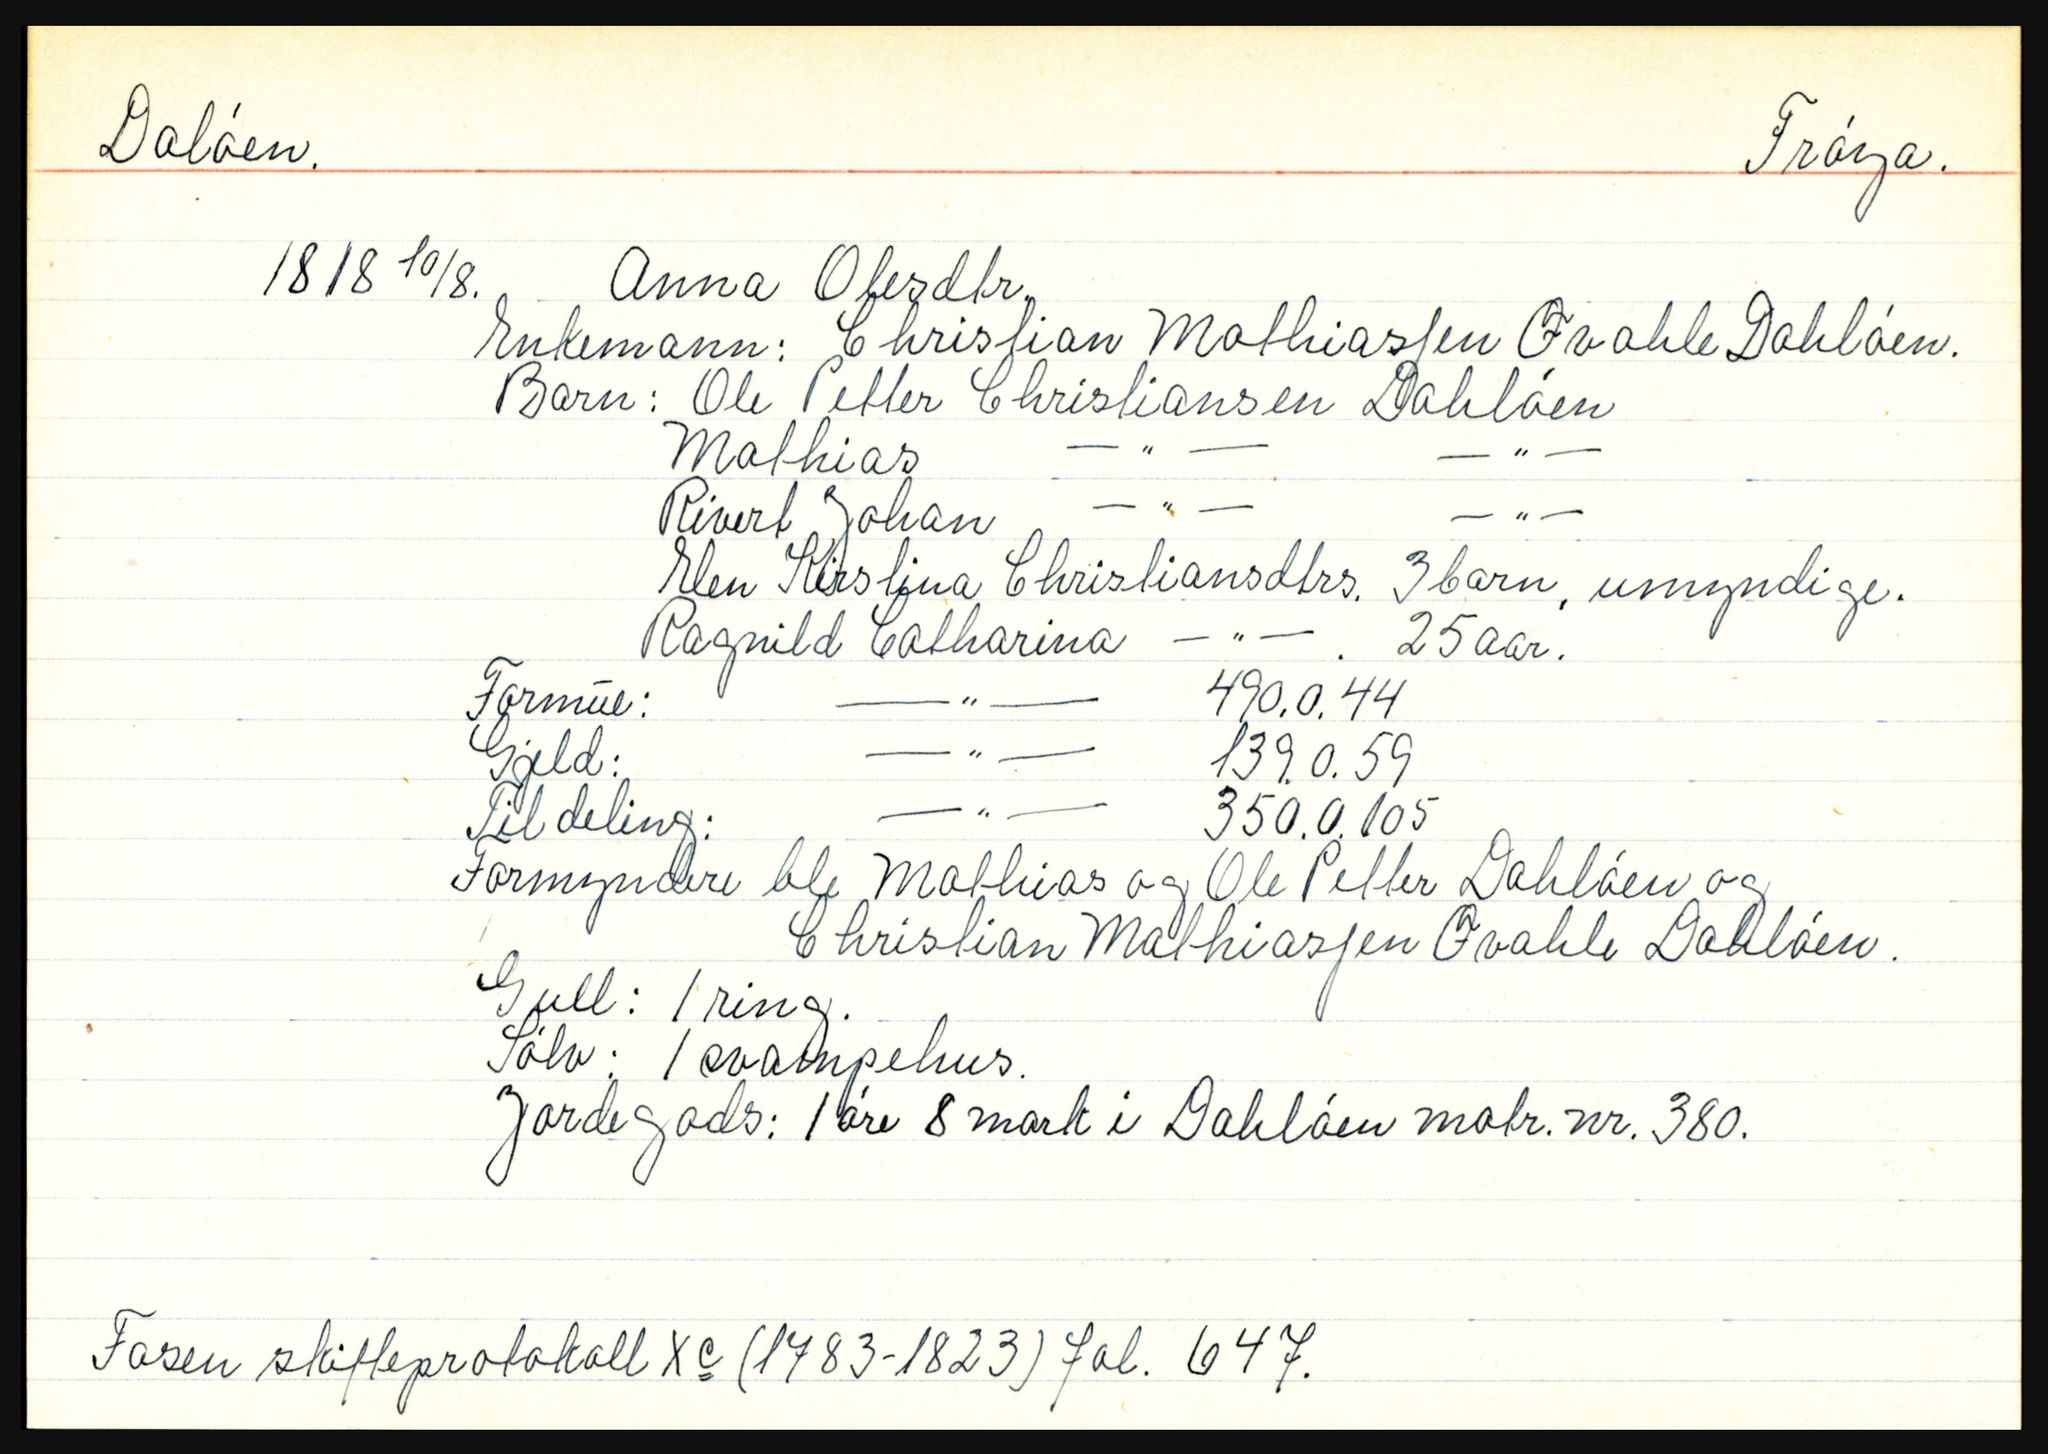 Daløen. Frøya.
1818 10/8. Anna Olesdtr.
Enkemann: Christian Mathiassen Qvahle Dahløen.
Barn: Ole Petter Christiansen Dahløen
Mathias —"— —"—
Rivert Johan —"— —"—
Elen Kirstina Christiansdtrs. 3 barn, umyndige.
Ragnild Catharina —"—. 25 aar.
Formue: —"— 490.0.44
Gjeld: —"— 139.0.59
Til deling: —"— 350.0.105
Formyndere ble Mathias og Ole Petter Dahløen og
Christian Mathiassen Qvahle Dahløen.
Gull: 1 ring.
Sølv: 1 svampehus.
Jordegods: 1 øre 8 mark i Dahløen matr. nr. 380.
Fosen skifteprotokoll Xc (1783-1823) fol. 647.